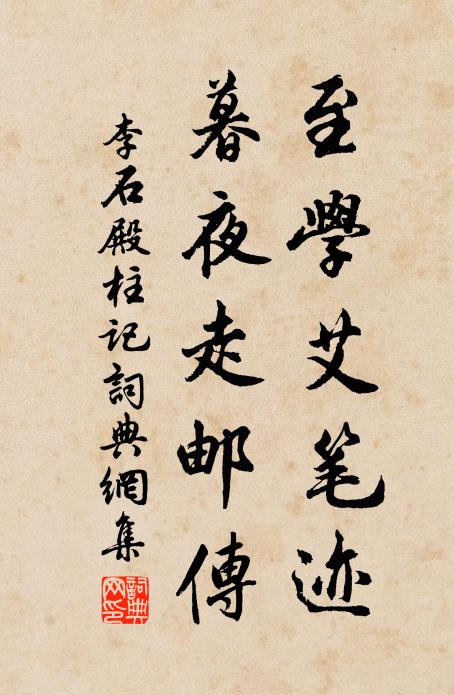 至學艾笔迹
暮夜走邮傳
李石殿柱记詞典網集
詞典网印